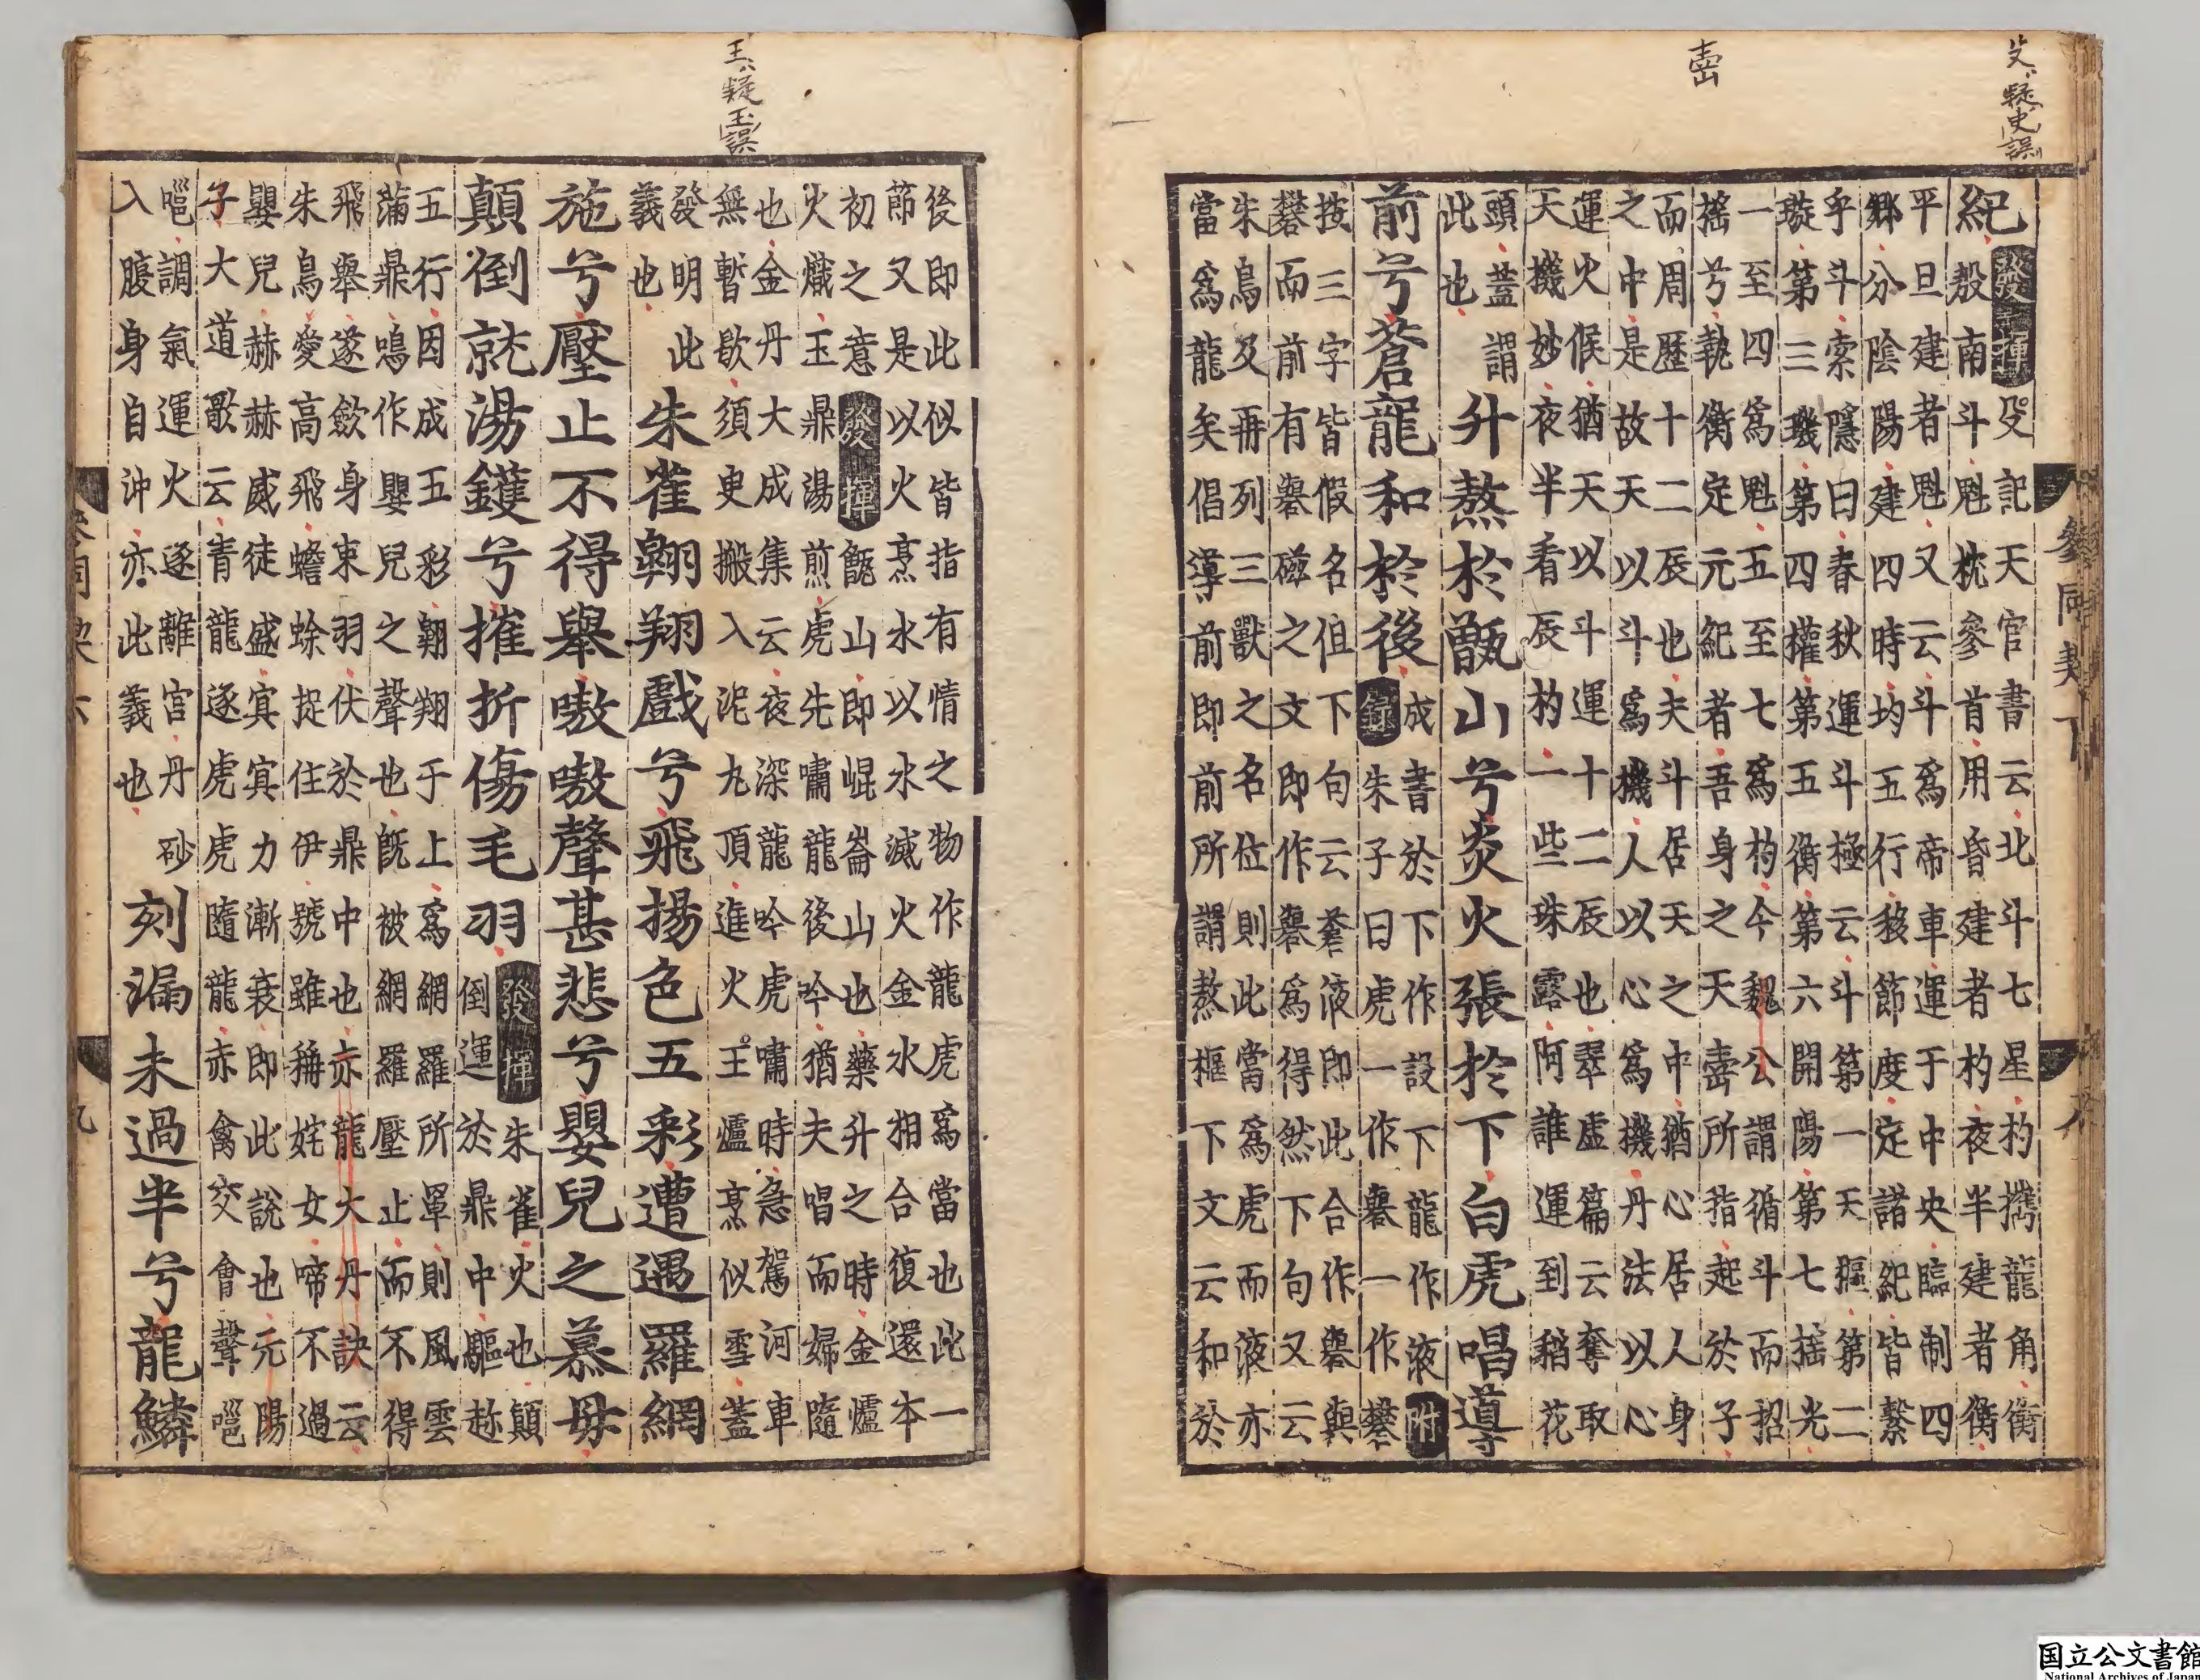 殳疑史誤
壼
紀
發揮殳記天官書云北斗七星杓携龍角衡
殷南斗魁枕參首用昏建者杓夜半建者衡
平旦建者魁又云斗爲帝車運于中央臨制四
鄉分陰陽建四時均五行移節度定諸紀皆繫
乎斗索隱曰春秋運斗極云斗第一天樞第二
璇第三璣第四權第五衡第六開陽第七揺光
一至四爲魁五至七爲杓今魏公謂循斗而招
揺兮執衡定元紀者吾身之天壼所指起於子
而周歷十二辰也夫斗居天之中猶心居人身
之中是故天以斗爲機人以心爲機丹法以心
運火候猶天以斗運十二辰也翠虛篇云奪取
天機妙夜半看辰杓一些珠露阿誰運到稻花
頭蓋謂
此也
升熬於甑山兮炎火張於下白虎唱導
前兮蒼龍和於後
成書於下作設下龍作液附
錄朱子曰虎一作礜一作礬
按三字皆假名但下句云蒼液即此合作礜與
礬而前有礜磁之文即作礜爲得然下句又云
朱鳥及再列三獸之名位則此當爲虎而液亦
當爲龍矣倡導前即前所謂熬樞下文云和於
參同契下
王疑玉誤
後即此似皆指有情之物作龍虎爲當也此一
節又是以火烹水以水滅火金水相合復還本
初之意發揮甑山即崐崙山也藥升之時金爐
火熾玉鼎湯煎虎先嘯龍後吟猶夫唱而婦隨
也金丹大成集云夜深龍吟虎嘯時急駕河車
無暫歇須臾搬入泥丸頂進火王爐烹似雪蓋
發明此
義也
朱雀翺翔戲兮飛揚色五彩遭遇羅網
施兮壓止不得舉嗷嗷聲甚悲兮嬰兒之慕母
顛倒就湯鑊兮摧折傷毛羽
發揮朱雀火也顛
倒運於鼎中驅趂
五行因成五彩翺翔于上爲網羅所罩則風雲
滿鼎鳴作嬰兒之聲也既被網羅壓止而不得
飛舉遂斂身束羽伏於鼎中也亦龍大丹訣云
朱鳥愛高飛蟾蜍捉住伊號雖稱姹女啼不過
嬰兒赫赫威徒盛㝠㝠力漸衰即此說也元陽
子大道歌云青龍逐虎虎隨龍赤禽交會聲嗈
嗈調氣運火逐離宮丹砂
入腹身自沖亦此義也
刻漏未過半兮龍鱗
九
国立公文書館
National Archives of Japan